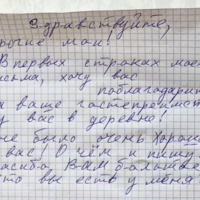 Здравствуйте,
мои!
В первых строках мое
хочу вас
поблагодарит
ваше гостеприимст
у вас в деревне!
не было очень хорош
вас. О чём и пишу.
Вам больше
то вы есть у меня